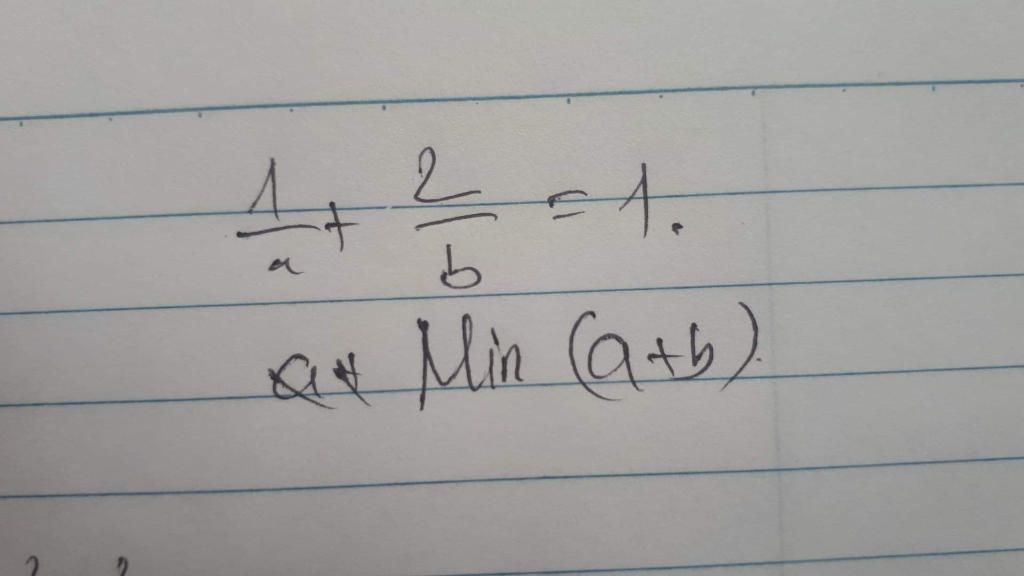 1/a + 2/b = 1.
Min (a+b).